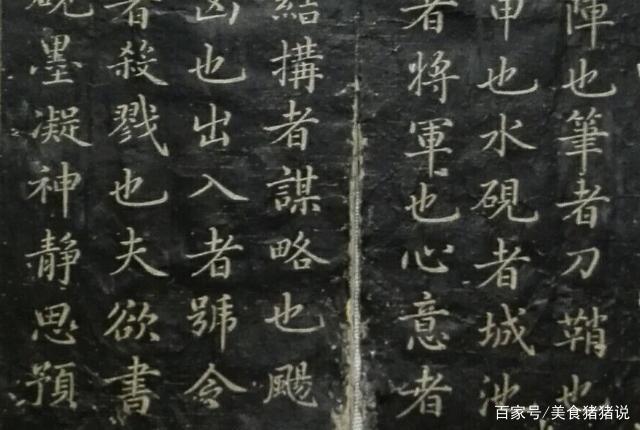 陣也筆者刀鞘也
甲也水硯者城池
者將軍也心意者
結搆者謀略也颺
凶也出入者號令
者殺戮也夫欲書
硯墨凝神静思預
百家号/美食猪猪说